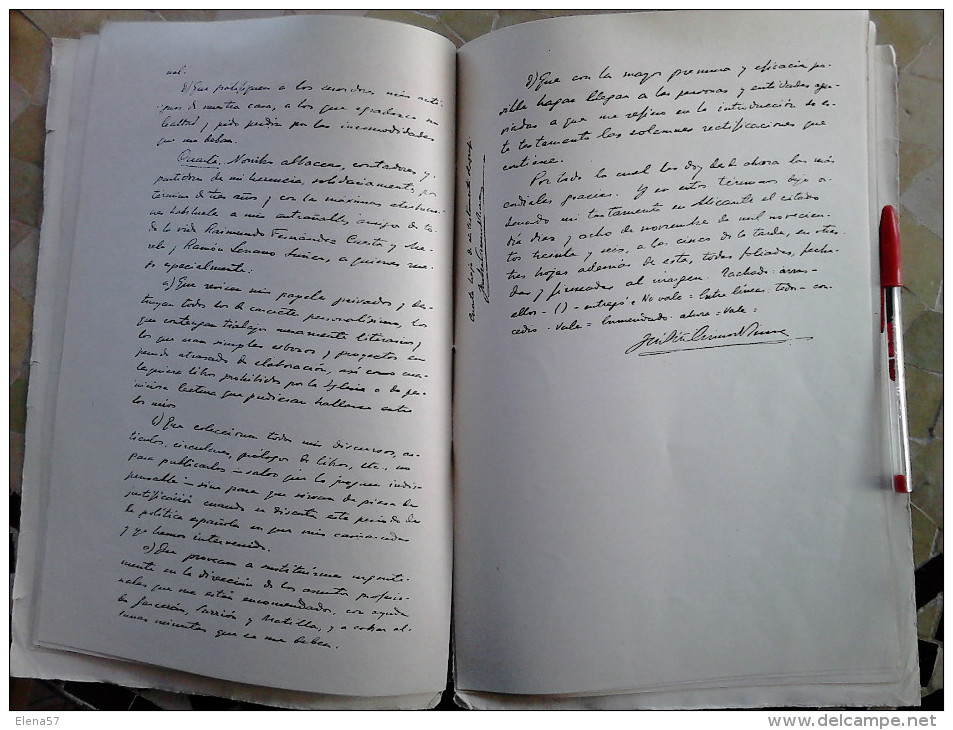 ual.
que me deban.
Cuarta. Nombro albaceas, contadores y
partidores de mi herencia, solidariamente, por
término de tres años y con las máximas atribucio-
nes habituales a mis entrañables amigos de to-
da la vida Raimundo Fernández Cuesta y Me-
relo y Ramón Serrano Suñer, a quienes rue-
go especialmente:
a) Que revisen mis papeles privados y des-
truyan todos los de carácter personalísimo, los
que contengan trabajos meramente literarios y
los que sean simples esbozos y proyectos en
período atrasado de elaboración, así como cua-
lquiera libros prohibidos por la Iglesia o de per-
niciosa lectura que pudieran hallarse entre
los míos
b) Que coleccionen todos mis discursos, ar-
tículos, circulares, prólogos de libros, etc., no
para publicarlos — salvo que lo juzguen indis-
pensable — sino para que sirvan de pieza de
justificación cuando se discuta este período de
la política española en que mis camaradas
y yo hemos intervenido.
c) Que provean a sustituirme urgente-
mente en la dirección de los asuntos profesio-
nales que me están encomendados, con ayuda
de Garcerán, Sarrión y Matilla, y a cobrar al-
gunas minutas que se me deben.
d) Que con la mayor premura y eficacia po-
sible hagan llegar a las personas y entidades agra-
viadas a que me refiero en la introducción de es-
te testamento las solemnes rectificaciones que
contiene.
Por todo lo cual les doy desde ahora las más
cordiales gracias. Y en estos términos dejo or-
denado mi testamento en Alicante el
día diez y ocho de noviembre de mil novecien-
tos treinta y seis, a las cinco de la tarde, en otras
tres hojas además de esta, todas foliadas, fecha-
das y firmadas al margen. Tachado:
vale = Entre líneas: todo - con-
cedo - Vale = Enmendado: ahora = Vale =
Elena57
http://www.delcampe.net